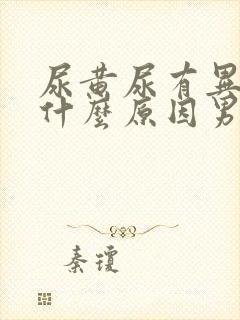 尿黄尿有異
什麼原因男
秦瓊